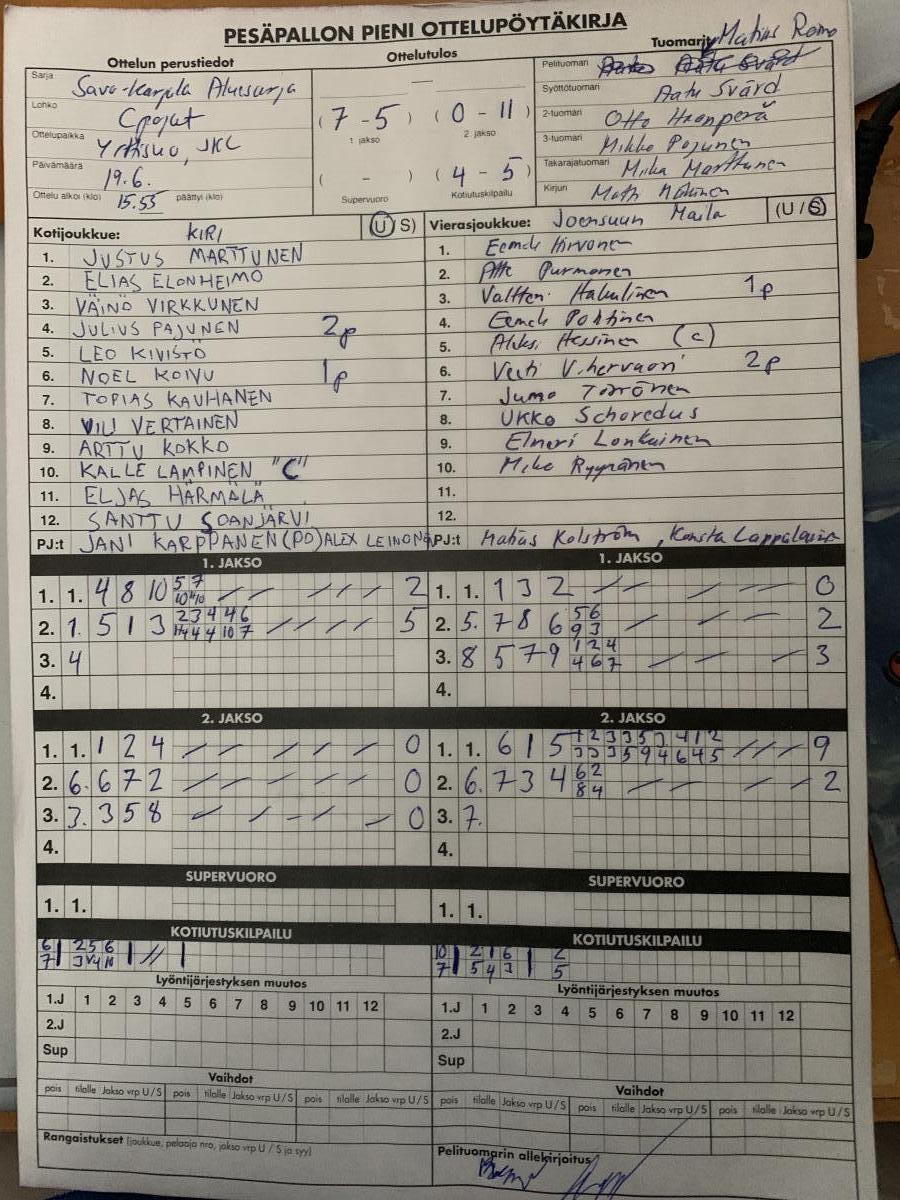 PESÄPALLON PIENI OTTELUPÖYTÄKIRJA
Ottelun perustiedot
Ottelutulos
Tuomarit
Matias Romo
Sarja
Savo-Karjala Aluesarja
Lohko
Cpojat
Ottelupaikka
JKL
Päivämäärä
19.6.
Ottelu alkoi (klo) 15.55 päättyi (klo)
( 7 - 5 ) ( 0 - 11 )
1. jakso 2. jakso
( - ) ( 4 - 5 )
Supervuoro Kotiutuskilpailu
Pelituomari
Syöttötuomari Aatu Svärd
2-tuomari Otto Haonperä
3-tuomari Mikko Pajunen
Takarajatuomari Mika Marttunen
Kirjuri
Kotijoukkue: KIRI (U/S)
1. JUSTUS MARTTUNEN
2. ELIAS ELONHEIMO
3. VÄINÖ VIRKKUNEN
4. JULIUS PAJUNEN 2p
5. LEO KIVISTÖ
6. NOEL KOIVU 1p
7. TOPIAS KAUHANEN
8. VILI VERTAINEN
9. ARTTU KOKKO
10. KALLE LAMPINEN "C"
11. ELJAS HÄRMÄLÄ
12. SANTTU SOANJÄRVI
PJ:t JANI KARPPANEN (PO) ALEX LEINONEN
Vierasjoukkue: Joensuun Maila (U/S)
1. Eemeli Hirvonen
2. Atte Purmonen
3. Valtteri Hakulinen 1p
4. Eemeli Pohtinen
5. Aleksi Hessinen (c)
6. Veeti Vihervuori 2p
7. Jumo Torrönen
8. UKKO Schoredus
9. Elmeri Lonkainen
10. Miko Ryynänen
11.
12.
PJ:t Matias Kolström, Konsta Lappalainen
1. JAKSO
1. 1. 4 8 10 5 7 2
10 10
2. 1. 5 1 3 2 3 4 4 6 5
4 4 10 7
3. 4
4.
1. JAKSO
1. 1. 1 3 2 0
2. 5. 7 8 6 5 6 2
9 3
3. 8 5 7 9 1 2 4 3
4 6 7
4.
2. JAKSO
1. 1. 1 2 4 0
2. 6. 6 7 2 0
3. 3. 3 5 8 0
4.
2. JAKSO
1. 1. 6 1 5 1 2 3 3 5 3 4 1 2 9
3 3 3 5 9 4 6 4 5
2. 6. 7 3 4 6 2 2
8 4
3. 7.
4.
SUPERVUORO
1. 1.
SUPERVUORO
1. 1.
KOTIUTUSKILPAILU
6 | 2 5 6 | // |
7 | 3 4 10
KOTIUTUSKILPAILU
10 | 2 1 6 | 2
7 | 5 4 3 | 5
Lyöntijärjestyksen muutos
1.J 1 2 3 4 5 6 7 8 9 10 11 12
2.J
Sup
Lyöntijärjestyksen muutos
1.J 1 2 3 4 5 6 7 8 9 10 11 12
2.J
Sup
Vaihdot
pois tilalle Jakso vrp U/S pois tilalle Jakso vrp U/S pois tilalle Jakso vrp U/S
Vaihdot
pois tilalle Jakso vrp U/S pois tilalle Jakso vrp U/S pois tilalle Jakso vrp U/S
Rangaistukset (joukkue, pelaaja nro, jakso vrp U / S ja syy)
Pelituomarin allekirjoitus